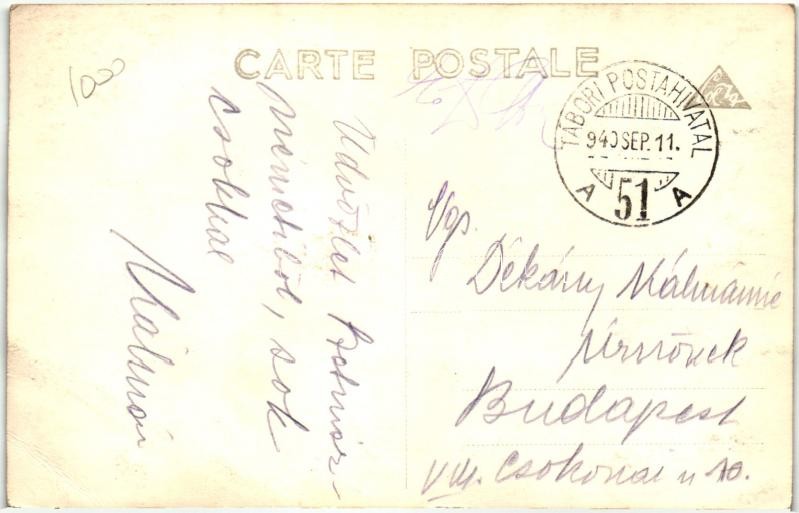 1000
CARTE POSTALE
TÁBORI POSTAHIVATAL
940 SEP. 11.
A 51 A
Üdvözlet Szatmár-
németiből, sok
csókkal
Kálmán
Vgs.
Dékány Kálmánné
úrnőnek
Budapest
VIII. Csokonai u 10.